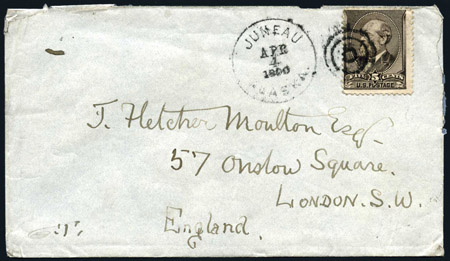 JUNEAU
APR
4
1890
ALASKA.
FIVE 5 CENTS
U.S. POSTAGE
J. Fletcher Moulton Esq.
57 Onslow Square.
LONDON. S.W.
England.